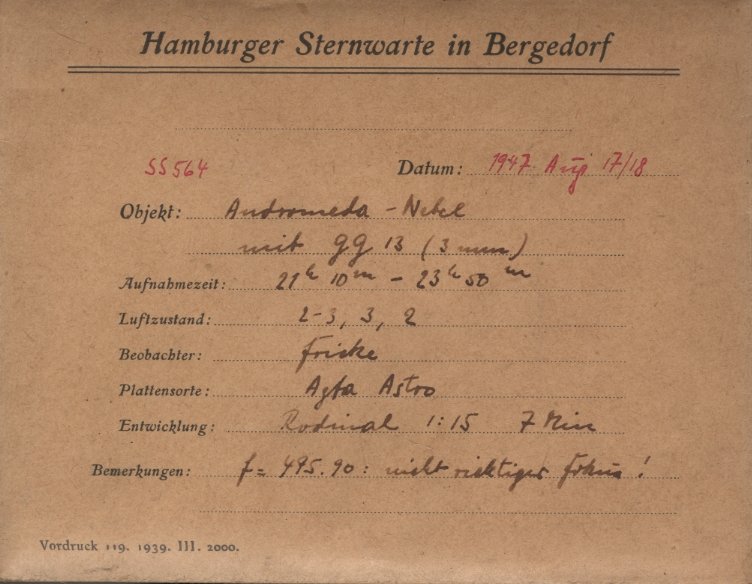 Hamburger Sternwarte in Bergedorf
SS 564 Datum: 1947 Aug 17/18
Objekt: Andromeda - Nebel
mit GG 13 (3 mm)
Aufnahmezeit: 21h 10m - 23h 50m
Luftzustand: 2-3, 3, 2
Beobachter: Fricke
Plattensorte: Agfa Astro
Entwicklung: Rodinal 1:15 7 Min
Bemerkungen: f = 495.90: nicht richtiger Fokus!
Vordruck 119. 1939. III. 2000.